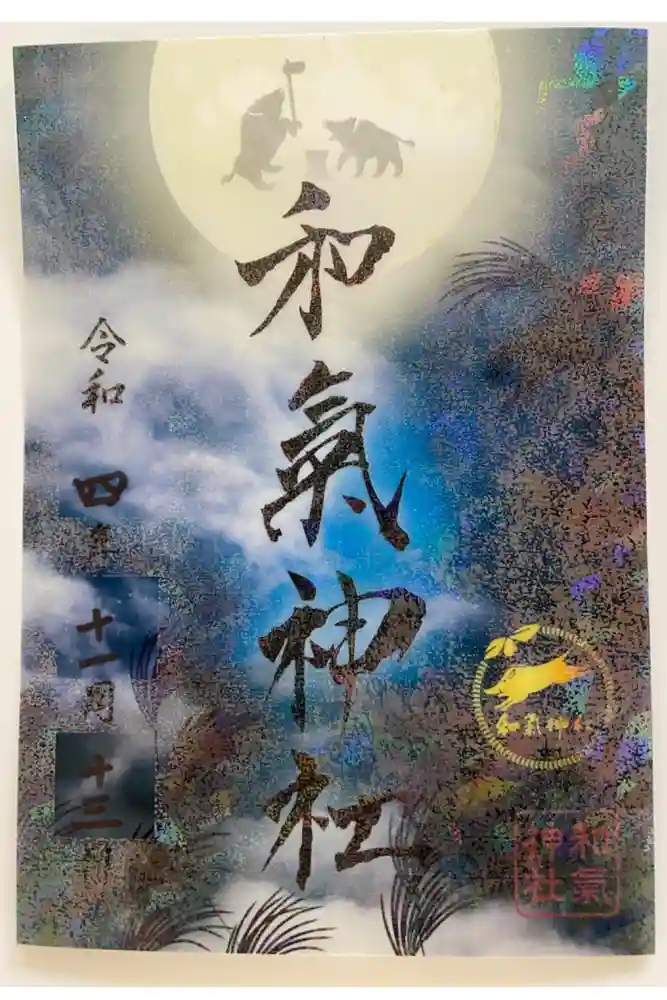 和氣神社
令和四年十一月十三
和氣神社
和氣神社